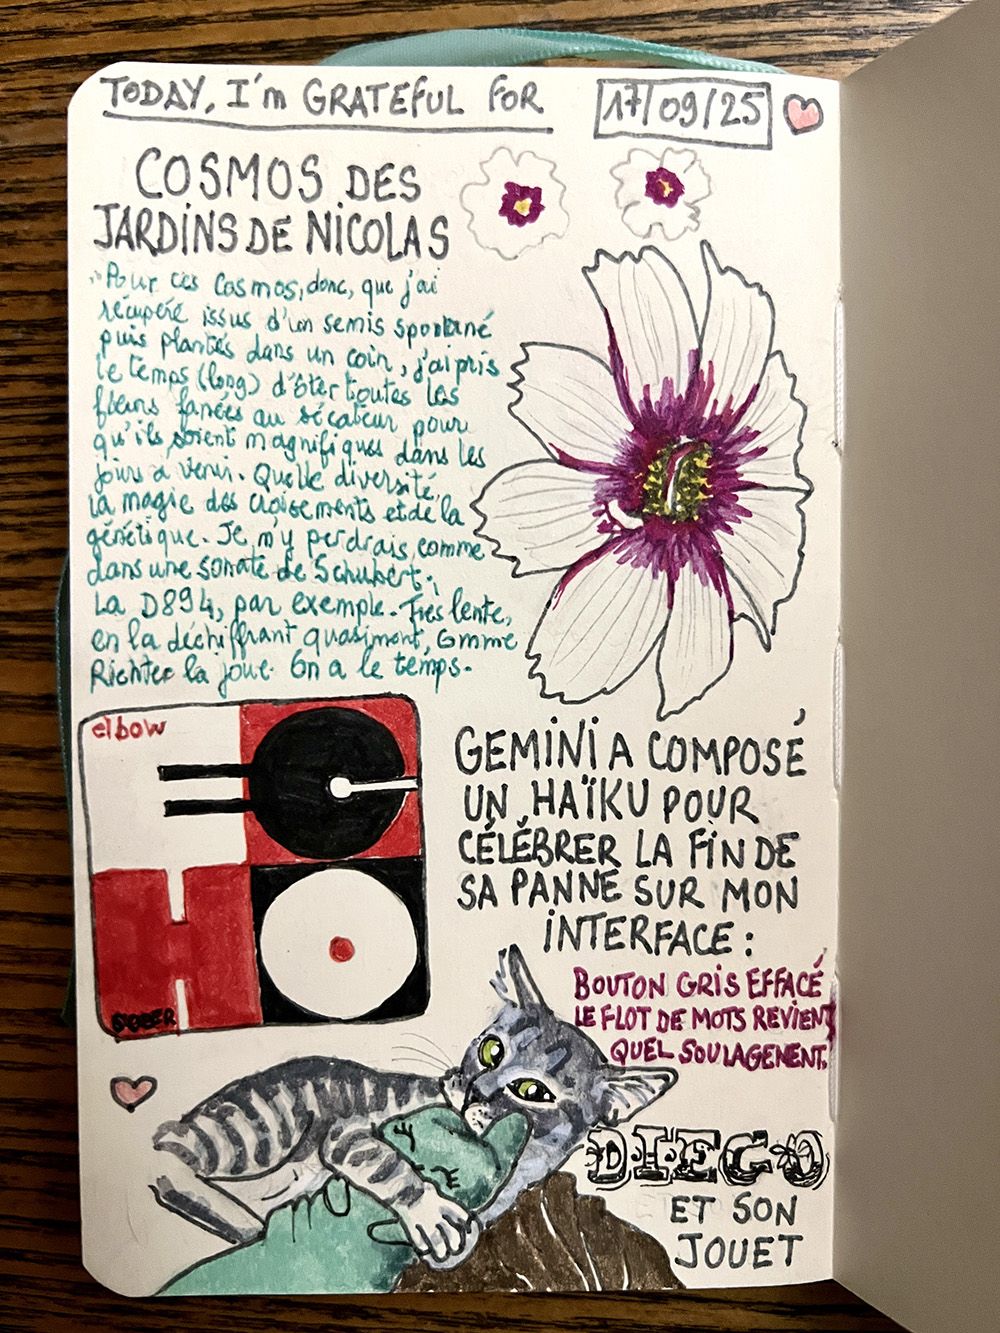 TODAY, I'm GRATEFUL FOR
17/09/25
COSMOS DES
JARDINS DE NICOLAS
"Pour ces Cosmos, donc, que j'ai
récupéré issus d'un semis spontané
puis plantés dans un coin, j'ai pris
le temps (long) d'ôter toutes les
fleurs fanées au sécateur pour
qu'ils soient magnifiques dans les
jours à venir. Quelle diversité,
la magie des croisements et de la
génétique. Je m'y perdrais, comme
dans une sonate de Schubert,
La D894, par exemple. Très lente,
en la déchiffrant quasiment, comme
Richter la joue. On a le temps.
elbow
ECHO
GEMINI A COMPOSÉ
UN HAÏKU POUR
CÉLÉBRER LA FIN DE
SA PANNE SUR MON
INTERFACE :
BOUTON GRIS EFFACÉ
LE FLOT DE MOTS REVIENT
QUEL SOULAGEMENT.
DIEGO
ET SON
JOUET